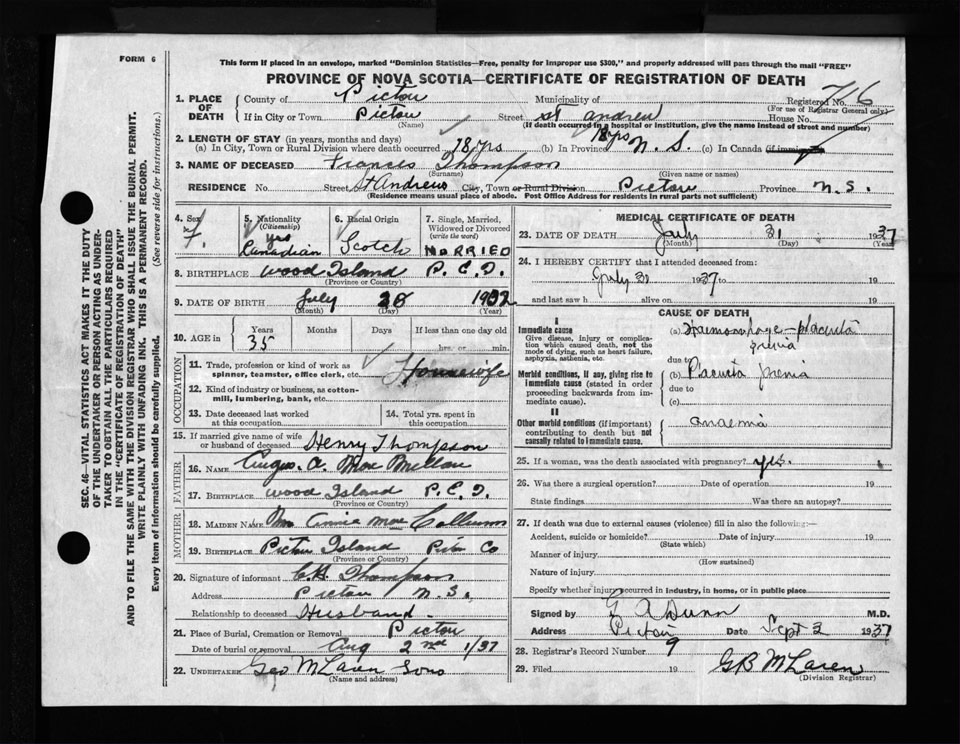 FORM 6
This form if placed in an envelope, marked "Dominion Statistics—Free, penalty for improper use $300," and properly addressed will pass through the mail "FREE"
PROVINCE OF NOVA SCOTIA—CERTIFICATE OF REGISTRATION OF DEATH
SEC. 46—VITAL STATISTICS ACT MAKES IT THE DUTY
OF THE UNDERTAKER OR PERSON ACTING AS UNDER-
TAKER TO OBTAIN ALL THE PARTICULARS REQUIRED
IN THE "CERTIFICATE OF REGISTRATION OF DEATH"
AND TO FILE THE SAME WITH THE DIVISION REGISTRAR WHO SHALL ISSUE THE BURIAL PERMIT.
WRITE PLAINLY WITH UNFADING INK. THIS IS A PERMANENT RECORD.
Every item of information should be carefully supplied. (See reverse side for instructions.)
1. PLACE OF DEATH County of Pictou Municipality of Registered No. 716
(For use of Registrar General only)
If in City or Town Pictou Street St Andrew House No.
(Name) (If death occurred in a hospital or institution, give the name instead of street and number)
2. LENGTH OF STAY (in years, months and days)
(a) In City, Town or Rural Division where death occurred 18 yrs (b) In Province 18 yrs N. S. (c) In Canada (if immigrant)
3. NAME OF DECEASED Frances Thompson
(Surname) (Given name or names)
RESIDENCE No. Street St Andrews City, Town or Rural Division Pictou Province N. S.
(Residence means usual place of abode. Post Office Address for residents in rural parts not sufficient)
4. Sex F.
5. Nationality (Citizenship) yes Canadian
6. Racial Origin Scotch
7. Single, Married, Widowed or Divorced (write the word) MARRIED
8. BIRTHPLACE Wood Island P. E. I.
(Province or Country)
9. DATE OF BIRTH July 28 1902
(Month) (Day) (Year)
10. AGE in Years 35 Months Days If less than one day old
hrs. or min.
OCCUPATION
11. Trade, profession or kind of work as spinner, teamster, office clerk, etc. Housewife
12. Kind of industry or business, as cotton-mill, lumbering, bank, etc.
13. Date deceased last worked at this occupation
14. Total yrs. spent in this occupation
15. If married give name of wife or husband of deceased Henry Thompson
FATHER
16. NAME Angus. A. Mac Millan
17. BIRTHPLACE Wood Island P. E. I.
MOTHER
18. MAIDEN NAME Annie Mac
19. BIRTHPLACE Pictou Island Pictou Co
(Province or Country)
20. Signature of informant Thompson
Address Pictou N. S.
Relationship to deceased Husband
21. Place of Burial, Cremation or Removal Pictou
Date of burial or removal Aug 2nd 1/37
22. UNDERTAKER Geo McLaren Sons
(Name and address)
MEDICAL CERTIFICATE OF DEATH
23. DATE OF DEATH July 31 1937
(Month) (Day) (Year)
24. I HEREBY CERTIFY that I attended deceased from:
July 31 1937 to 19
and last saw h alive on 19
CAUSE OF DEATH
I
Immediate cause (a) Haemorrhage—placenta previa
Give disease, injury or complication which caused death, not the mode of dying, such as heart failure, asphyxia, asthenia, etc.
due to
Morbid conditions, if any, giving rise to immediate cause (stated in order proceeding backwards from immediate cause). (b) Placenta previa
due to
(c)
II
Other morbid conditions (if important) contributing to death but not causally related to immediate cause. anaemia
25. If a woman, was the death associated with pregnancy? yes.
26. Was there a surgical operation? Date of operation 19
State findings Was there an autopsy?
27. If death was due to external causes (violence) fill in also the following:—
Accident, suicide or homicide? Date of injury 19
(State which)
Manner of injury
(How sustained)
Nature of injury
Specify whether injury occurred in industry, in home, or in public place
Signed by G A Dunn M.D.
Address Pictou Date Sept 2 1937
28. Registrar's Record Number 9
29. Filed 19 GB McLaren
(Division Registrar)